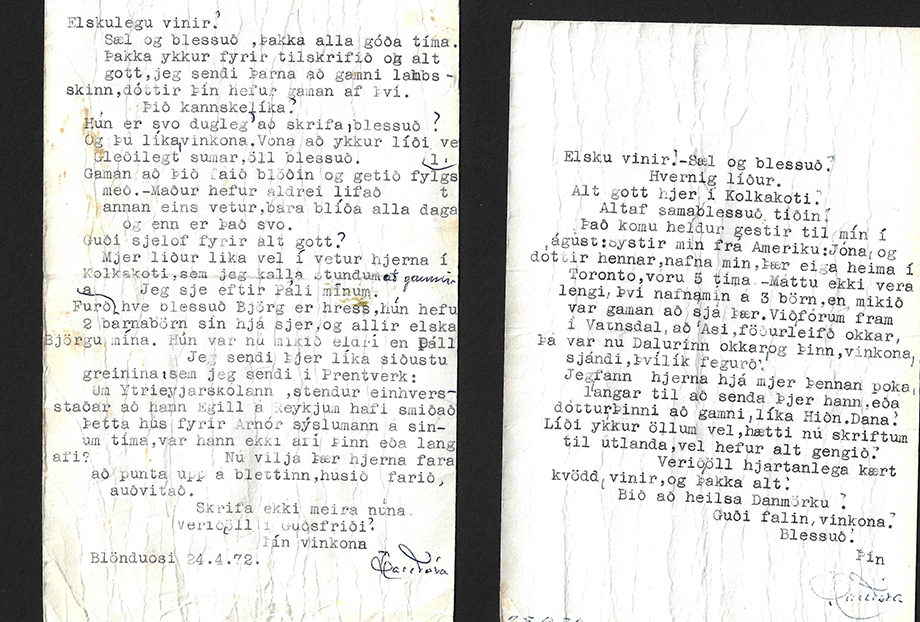 Elskulegu vinir!
Sæl og blessuð ,þakka alla góða tíma.
Þakka ykkur fyrir tilskrifið og alt
gott,jeg sendi þarna að gamni lambs-
skinn,dóttir þín hefur gaman af því.
Þið kannskelíka?
Hún er svo dugleg að skrifa,blessuð ?
Og þú líka,vinkona.Vona að ykkur líði ve
Gleðilegt sumar,öll blessuð. l.
Gaman að þið faið blöðin og getið fylgs
með.-Maður hefur aldrei lifað t
annan eins vetur,bara blíða alla daga
og enn er það svo.
Guði sjelof fyrir alt gott?
Mjer liður lika vel í vetur hjerna í
Kolkakoti,sem jeg kalla stundum
a Jeg sje eftir Páli mínum.
Furð hve blessuð Björg er hress,hún hefu
2 barnabörn sín hjá sjer,og allir elska
Björgu mína. Hún var nú mikið eldri en Páll
Jeg sendi þjer líka siðustu
greinina:sem jeg sendi i Prentverk:
Um Ytrieyjarskólann ,stendur einhvers-
staðar að hann Egill á Reykjum hafi smiðað
Þetta hús fyrir Arnór sýslumann á sín-
um tíma,var hann ekki afi þinn eða lang
afi? Nú vilja þær hjerna fara
að punta upp a blettinn,húsið farið,
auðvitað.
Skrifa ekki meira núna.
Veriðöll i Guðsfriði?
Þín vinkona
Blönduosi 24.4.72.
Elsku vinir!-Sæl og blessuð?
Hvernig líður.
Alt gott hjer í Kolkakoti?
Altaf samablessuð tíðin!
Það komu heldur gestir til mín í
ágúst:systir min frá Ameriku:Jóna,og
dóttir hennar,nafna min,þær eiga heima í
Toronto,voru 5 tíma -Máttu ekki vera
lengi,því nafnamín á 3 börn,en mikið
var gaman að sjá þær.Viðfórum fram
í Vatnsdal,að Ási,föðurleifð okkar,
Þá var nú Dalurinn okkar,og þinn,vinkona,
sjándi,þvílík fegurð?
Jegfann hjerna hjá mjer þennan poka,
langar til að senda þjer hann,eða
dótturþinni að gamni,líka Hiðn.Dana?
Líði ykkur öllum vel,hætti nú skriftum
til útlanda,vel hefur alt gengið?
Veriðöll hjartanlega kært
kvödd,vinir,og þakka alt?
Bið að heilsa Danmörku ?
Guði falin,vinkona?
Blessuð?
Þín